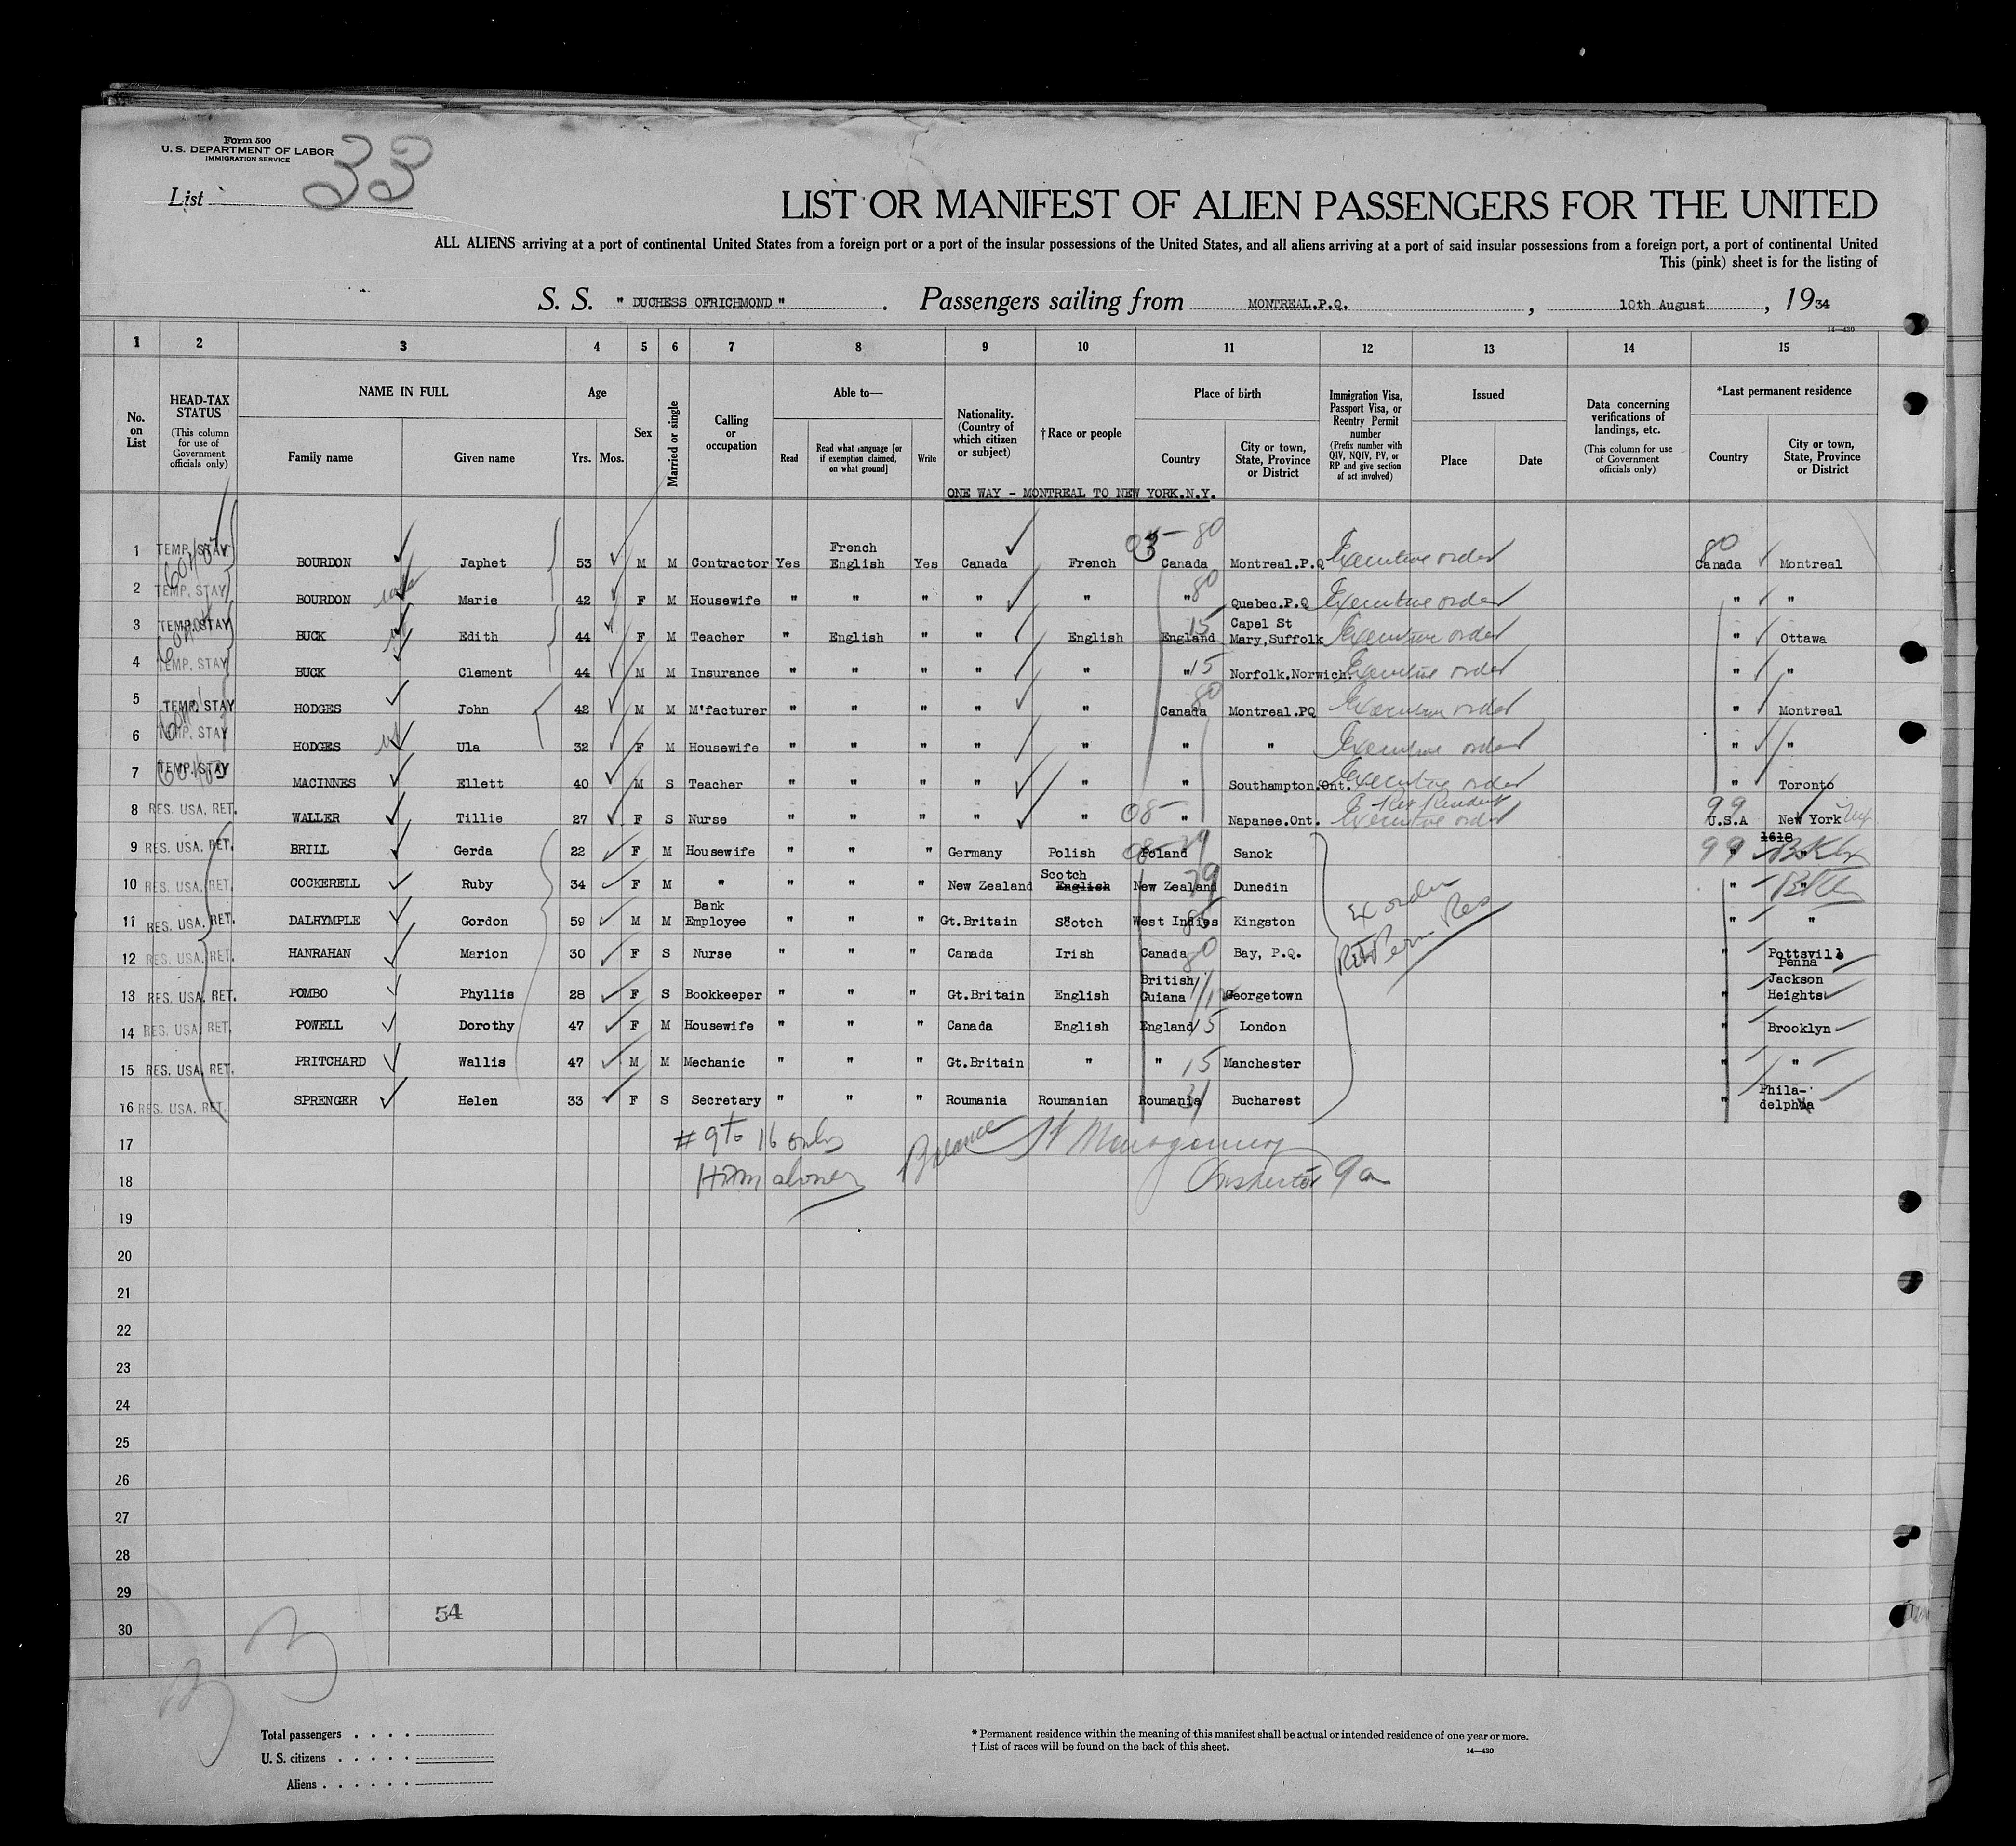 Form 500
U. S. DEPARTMENT OF LABOR
IMMIGRATION SERVICE
List 33
LIST OR MANIFEST OF ALIEN PASSENGERS FOR THE UNITED
ALL ALIENS arriving at a port of continental United States from a foreign port or a port of the insular possessions of the United States, and all aliens arriving at a port of said insular possessions from a foreign port, a port of continental United
This (pink) sheet is for the listing of
S. S. " DUCHESS OFRICHMOND ". Passengers sailing from MONTREAL.P.Q. , 10th August , 1934
14—430
1 2 3 4 5 6 7 8 9 10 11 12 13 14 15
No. on List
HEAD-TAX STATUS (This column for use of Government officials only)
NAME IN FULL Family name Given name
Age Yrs. Mos.
Sex
Married or single
Calling or occupation
Able to— Read Read what language [or if exemption claimed, on what ground] Write
Nationality. (Country of which citizen or subject)
†Race or people
Place of birth Country City or town, State, Province or District
Immigration Visa, Passport Visa, or Reentry Permit number (Prefix number with QIV, NQIV, PV, or RP and give section of act involved)
Issued Place Date
Data concerning verifications of landings, etc. (This column for use of Government officials only)
*Last permanent residence Country City or town, State, Province or District
ONE WAY - MONTREAL TO NEW YORK.N.Y.
1 TEMP. STAY BOURDON Japhet 53 M M Contractor Yes French English Yes Canada French Canada 80 Montreal.P.Q Executive order Canada 80 Montreal
2 TEMP. STAY BOURDON Marie 42 F M Housewife " " " " " " 80 Quebec.P.Q Executive order " "
3 TEMP. STAY BUCK Edith 44 F M Teacher " English " " English England 15 Capel St Mary,Suffolk Executive order " Ottawa
4 TEMP. STAY BUCK Clement 44 M M Insurance " " " " " " 15 Norfolk.Norwich. Executive order " "
5 TEMP. STAY HODGES John 42 M M M'facturer " " " " " Canada 80 Montreal.PQ Executive order " Montreal
6 TEMP. STAY HODGES Ula 32 F M Housewife " " " " " " " Executive order " "
7 TEMP. STAY MACINNES Ellett 40 M S Teacher " " " " " " Southampton.Ont. Executive order " Toronto
8 RES. USA. RET. WALLER Tillie 27 F S Nurse " " " " " 08- " Napanee.Ont. Executive order 99 U.S.A New York
9 RES. USA. RET. BRILL Gerda 22 F M Housewife " " " Germany Polish Poland Sanok 99 " 1618 " Bklyn
10 RES. USA. RET. COCKERELL Ruby 34 F M " " " " New Zealand Scotch English New Zealand 79 Dunedin " " Bklyn
11 RES. USA. RET. DALRYMPLE Gordon 59 M M Bank Employee " " " Gt.Britain Scotch West Indies Kingston " "
12 RES. USA. RET. HANRAHAN Marion 30 F S Nurse " " " Canada Irish Canada 80 Bay, P.Q. " Pottsvill Penna
13 RES. USA. RET. POMBO Phyllis 28 F S Bookkeeper " " " Gt.Britain English British Guiana Georgetown " Jackson Heights
14 RES. USA. RET. POWELL Dorothy 47 F M Housewife " " " Canada English England 15 London " Brooklyn
15 RES. USA. RET. PRITCHARD Wallis 47 M M Mechanic " " " Gt.Britain " " 15 Manchester " "
16 RES. USA. RET. SPRENGER Helen 33 F S Secretary " " " Roumania Roumanian Roumania 31 Bucharest " Phila-delphia
Ex order
Ret Perm Res
17 # 9 to 16 only Balance Montgomery
18 Inspector
19
20
21
22
23
24
25
26
27
28
29
54
30
33
Total passengers . . . .
U. S. citizens . . . . .
Aliens . . . . . .
* Permanent residence within the meaning of this manifest shall be actual or intended residence of one year or more.
† List of races will be found on the back of this sheet.
14—430